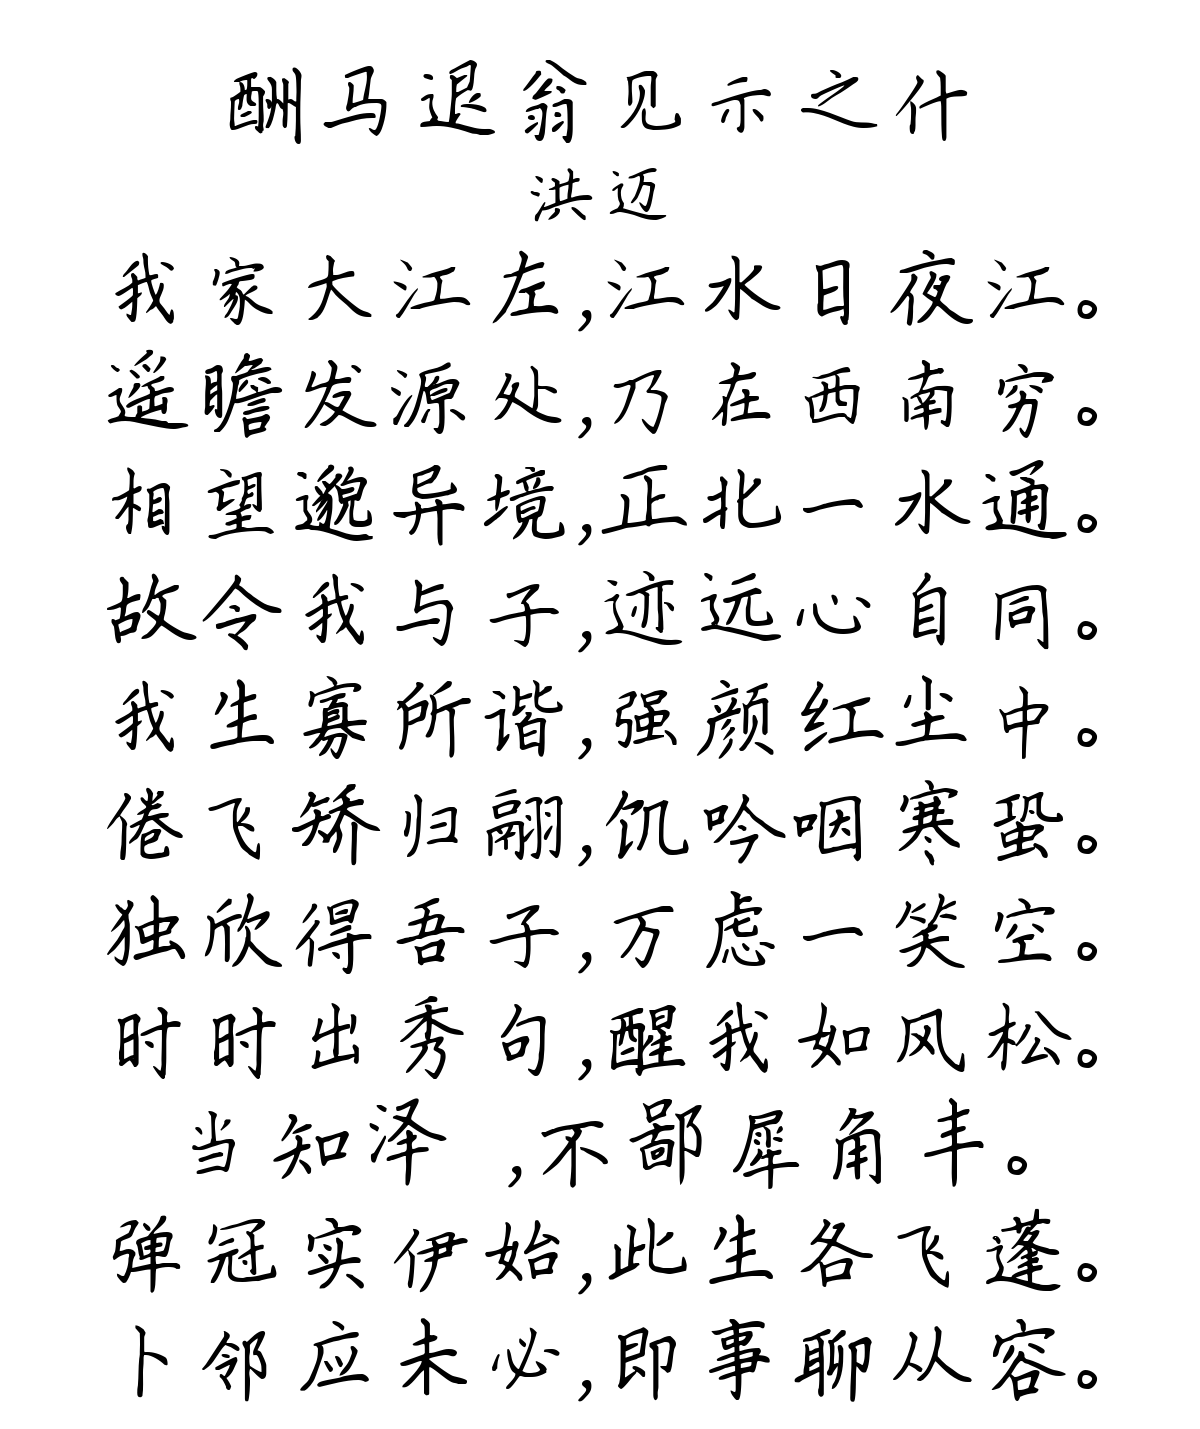 酬马退翁见示之什
洪迈
我家大江左,江水日夜江。
遥瞻发源处,乃在西南穷。
相望邈异境,正北一水通。
故令我与子,迹远心自同。
我生寡所谐,强颜红尘中。
倦飞矫归翮,饥吟咽寒蛩。
独欣得吾子,万虑一笑空。
时时出秀句,醒我如风松。
当知泽 ,不鄙犀角丰。
弹冠实伊始,此生各飞蓬。
卜邻应未必,即事聊从容。